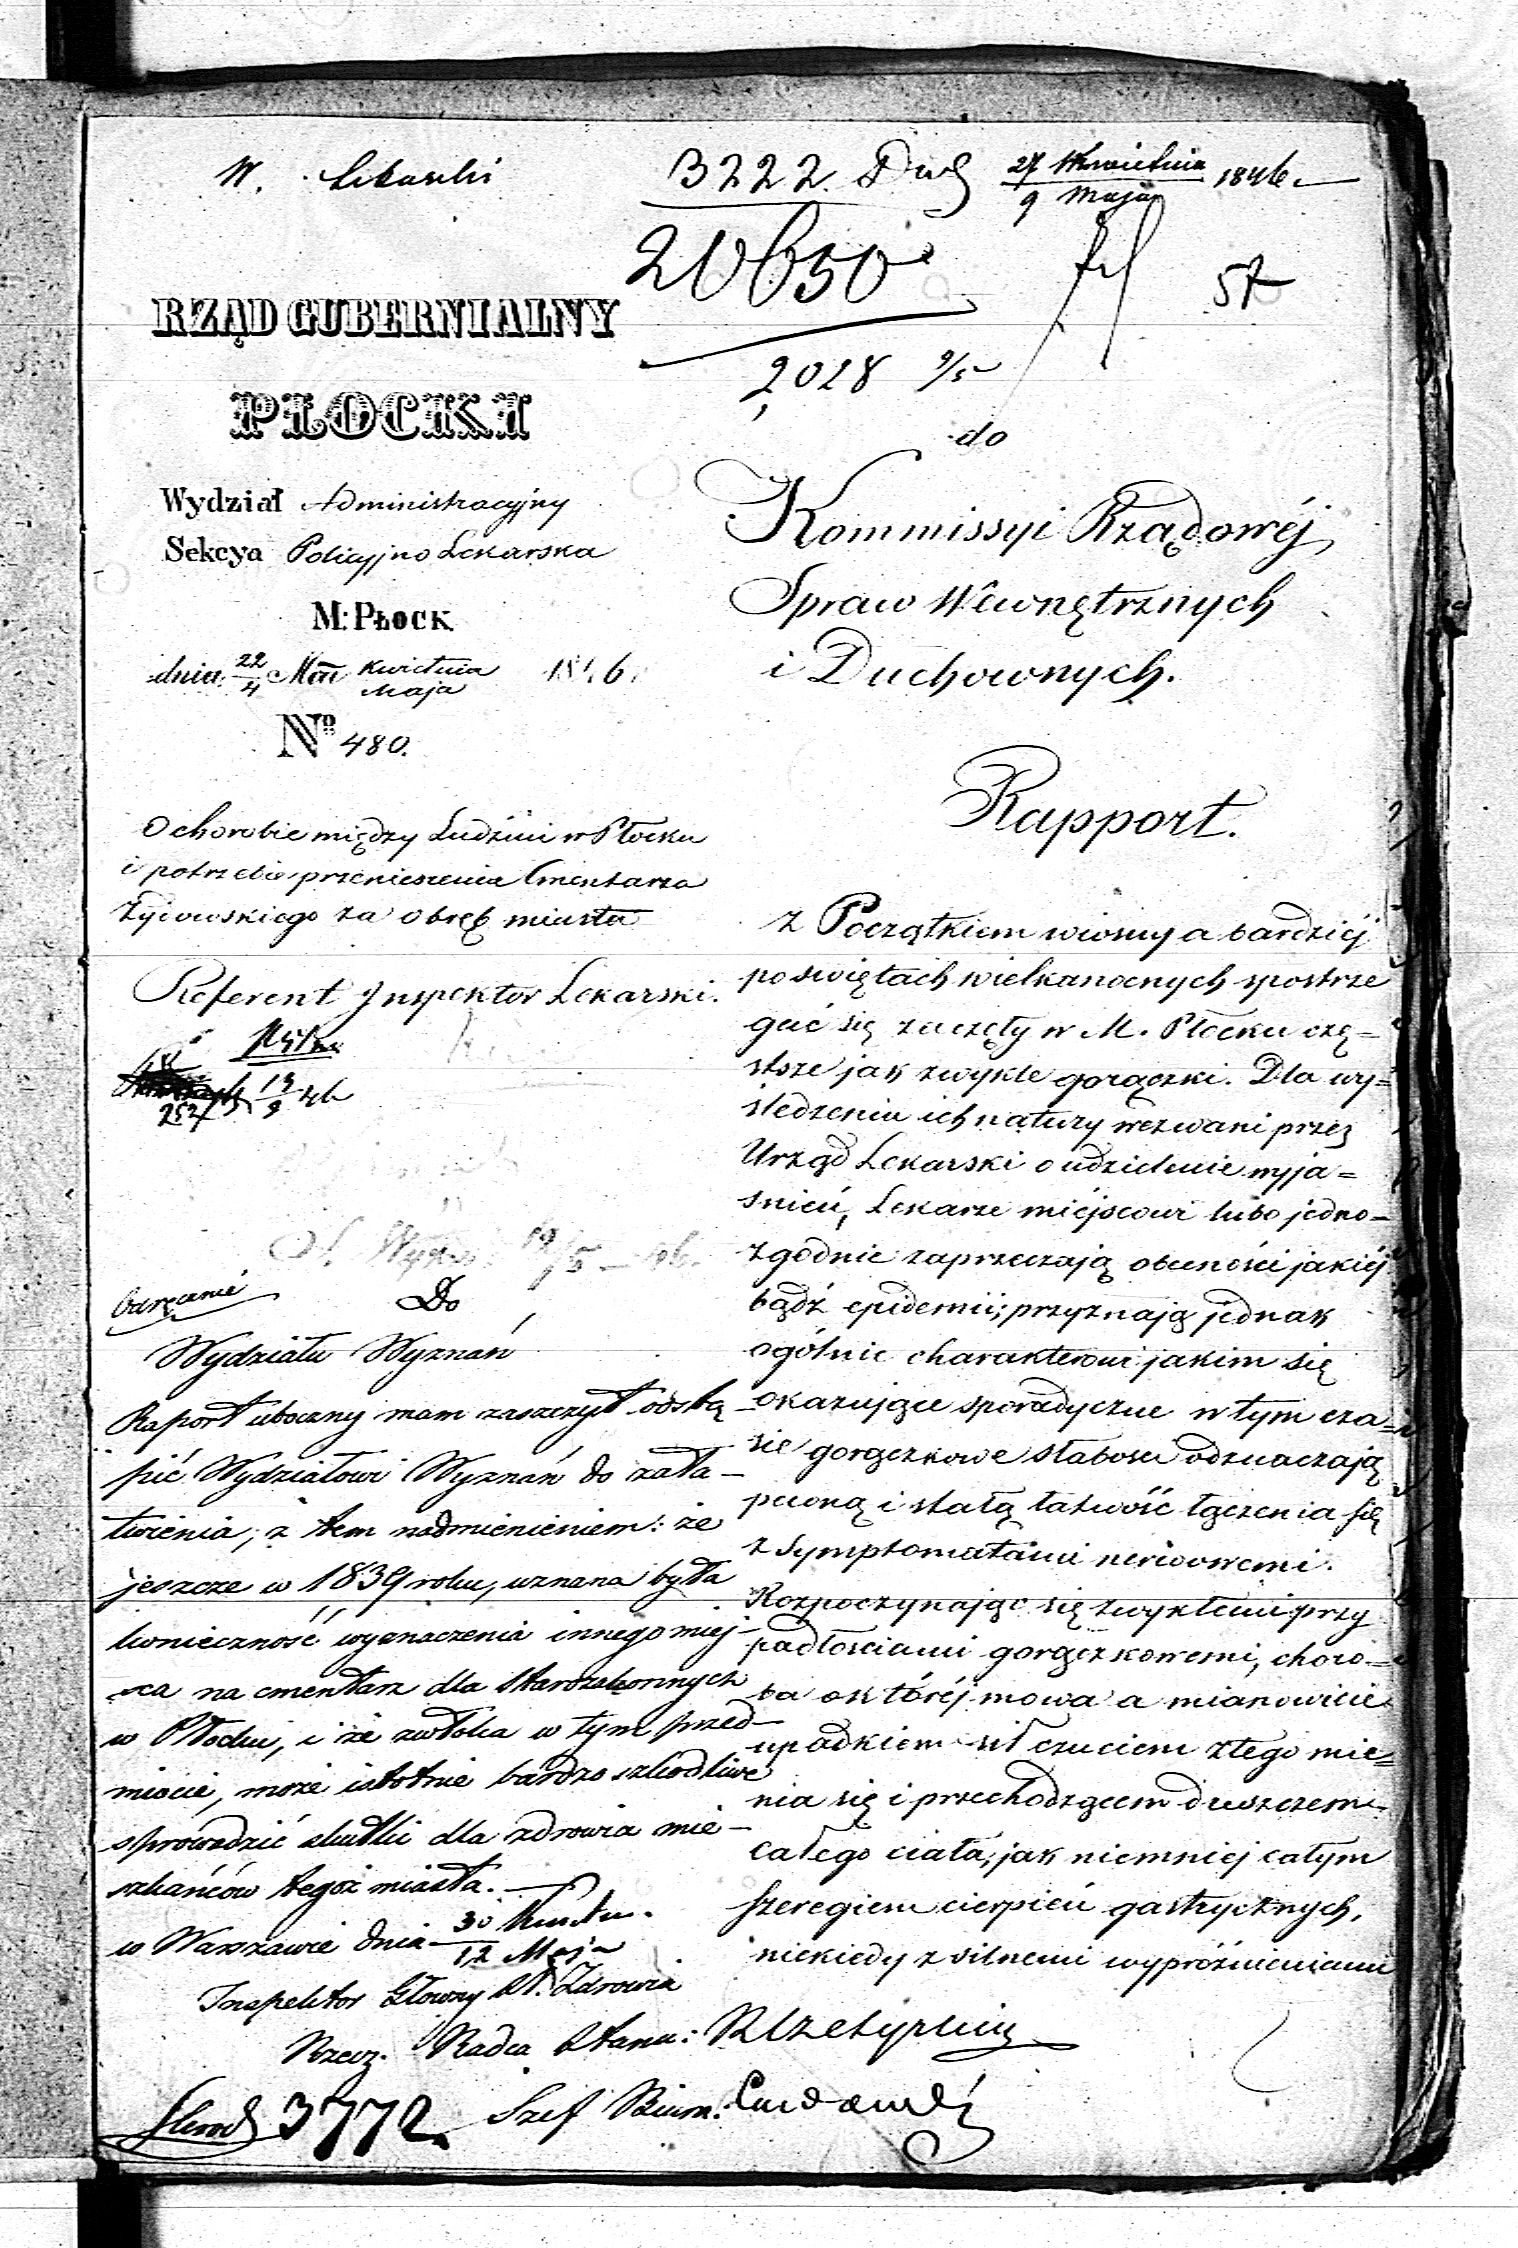 W. Lekarski
3222. 27 Kwietnia / 9 Maja 1846
20650
57
2028 9/5
RZĄD GUBERNIALNY
PŁOCKI
Wydział Administracyjny
Sekcya Policyjno Lekarska
M: PŁOCK
dnia 22/4 Kwietnia / Maja 1846.
No 480.
O chorobie między Ludźmi w Płocku
i potrzebie przeniesienia Cmentarza
Żydowskiego za obręb miasta
Referent Inspektor Lekarski.
19/5 46
Odręcznie
Do
Wydziału Wyznań
Raport uboczny mam zaszczyt odstą
pić Wydziałowi Wyznań do zała-
twienia, z tem nadmienieniem: że
jeszcze w 1839 roku, uznana była
konieczność wyznaczenia innego miej-
sca na cmentarz dla starozakonnych
w Płocku, i że zwłoka w tym przed-
miocie, może istotnie bardzo szkodliwe
sprowadzić skutki dla zdrowia mie-
szkańców tegoż miasta.
w Warszawie dnia 30 Kwietn. / 12 Maja
Inspektor Główny Sł. Zdrowia
Rzecz. Radca Stanu:
Szef Biura:
3772.
do
Kommissyi Rządowéj
Spraw Wewnętrznych
i Duchownych.
Rapport.
Z Początkiem wiosny a bardziéj
po swiętach wielkanocnych spostrze
gać się zaczęły w M. Płocku czę=
stsze jak zwykle gorączki. Dla wy=
sledzenia ich natury wezwani przez
Urząd Lekarski o udzielenie wyja=
snień, Lekarze miéjscowi lubo jedno-
zgodnie zaprzeczają obecności jakiéj
bądź epidemii; przyznają jednak
ogólnie charakterowi jakim się
okazujące sporadyczne w tym cza=
sie gorączkowe słabości odznaczają
pewną i stałą łatwość łączenia się
z symptomatami nerwowemi.
Rozpoczynając się zwykłemi przy
padłościami gorączkowemi, choro=
ba o któréj mowa a mianowicie
upadkiem sił czuciem złego mie=
nia się i przechodzącem dreszczem
całego ciała, jak niemniéj całym
szeregiem cierpień gastrycznych,
niekiedy z silnemi wypróżnieniami